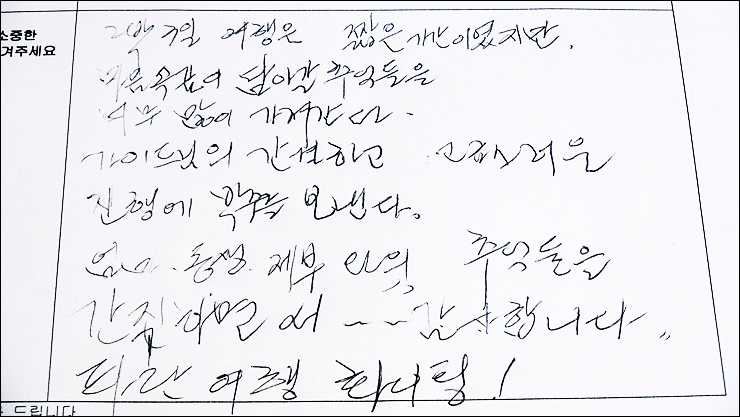 소중한
겨주세요
2박3일 여행은 짧은 기간이였지만,
마음속깊이 담아갈 추억들을
너무 많이 가져간다.
가이드님의 친절하고 고급스러운
진행에 박수를 보낸다.
엄마. 동생. 제부 와의 추억들을
간직하면서 ~~ 감사합니다,,
파란여행 화이팅!
드립니다